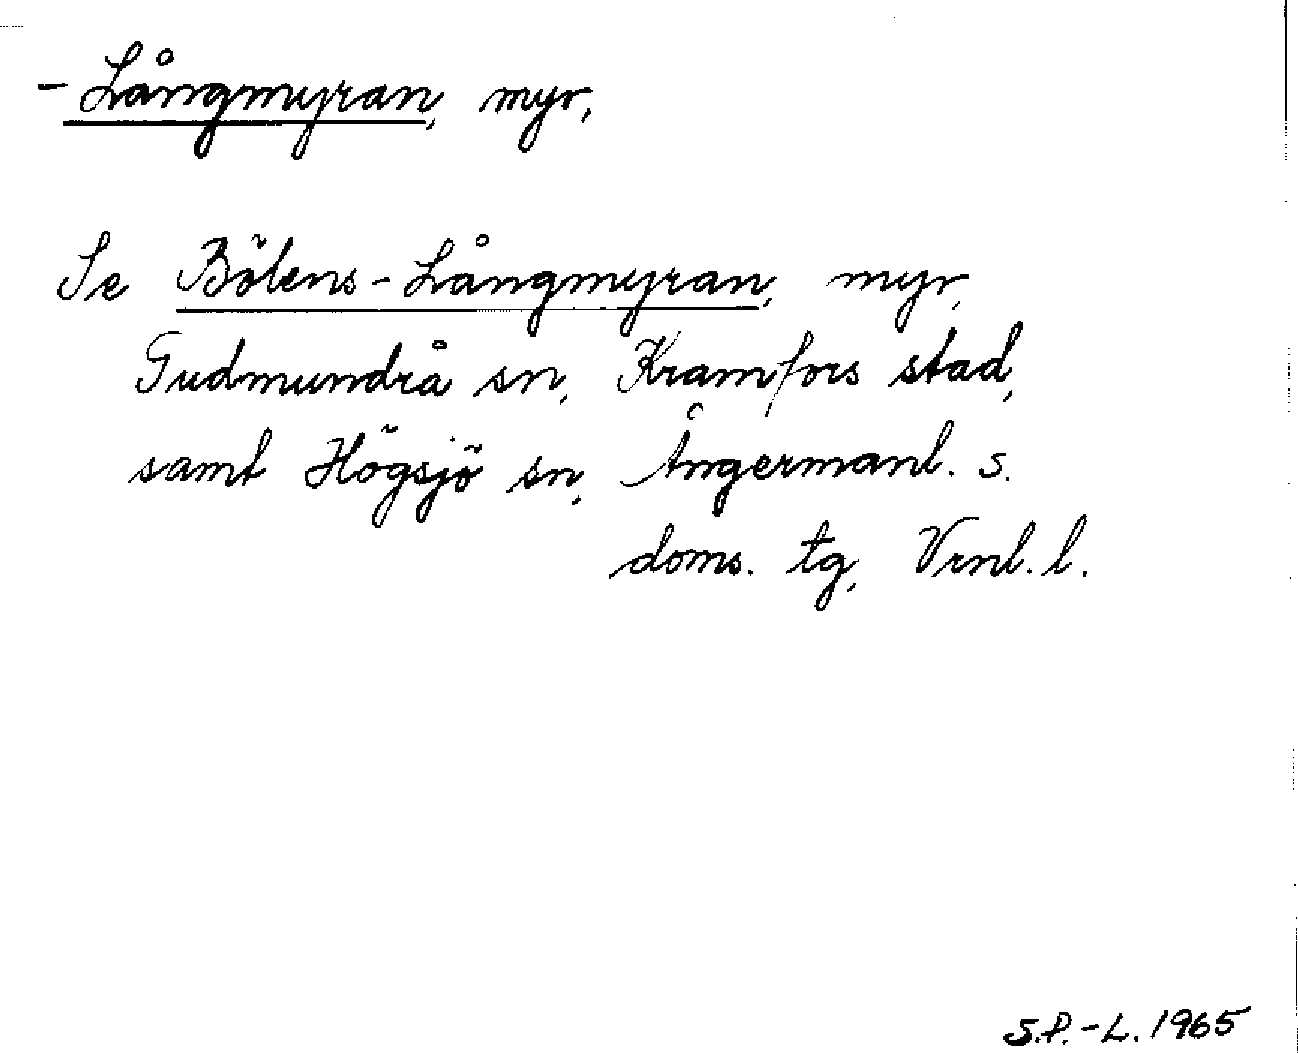 - Långmyran, myr,
Se Bölens-Långmyran, myr,
Gudmundrå sn, Kramfors stad,
samt Högsjö sn, Ångermanl. s.
doms. tg, Vrnl. l.
S.P.-L. 1965